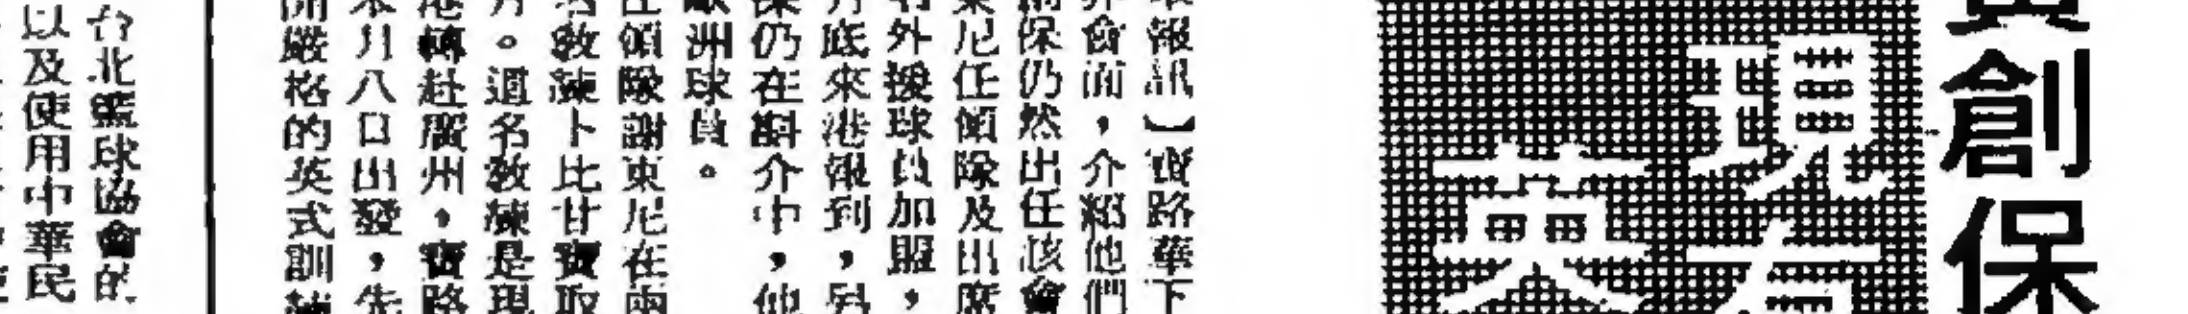 創保
現有
英
報訊】寶路華下
會面，介紹他們
保仍然出任該會
尼任領隊及出席
外援球員加盟，
底來港報到，另
仍在斟介中，他
歐洲球員。
任領隊謝東尼在兩
教練卜比甘寶取
月。這名教練是現
港轉赴廣州，寶路
本月八日出發，先
開嚴格的英式訓練
台北籃球協會的
以及使用中華民